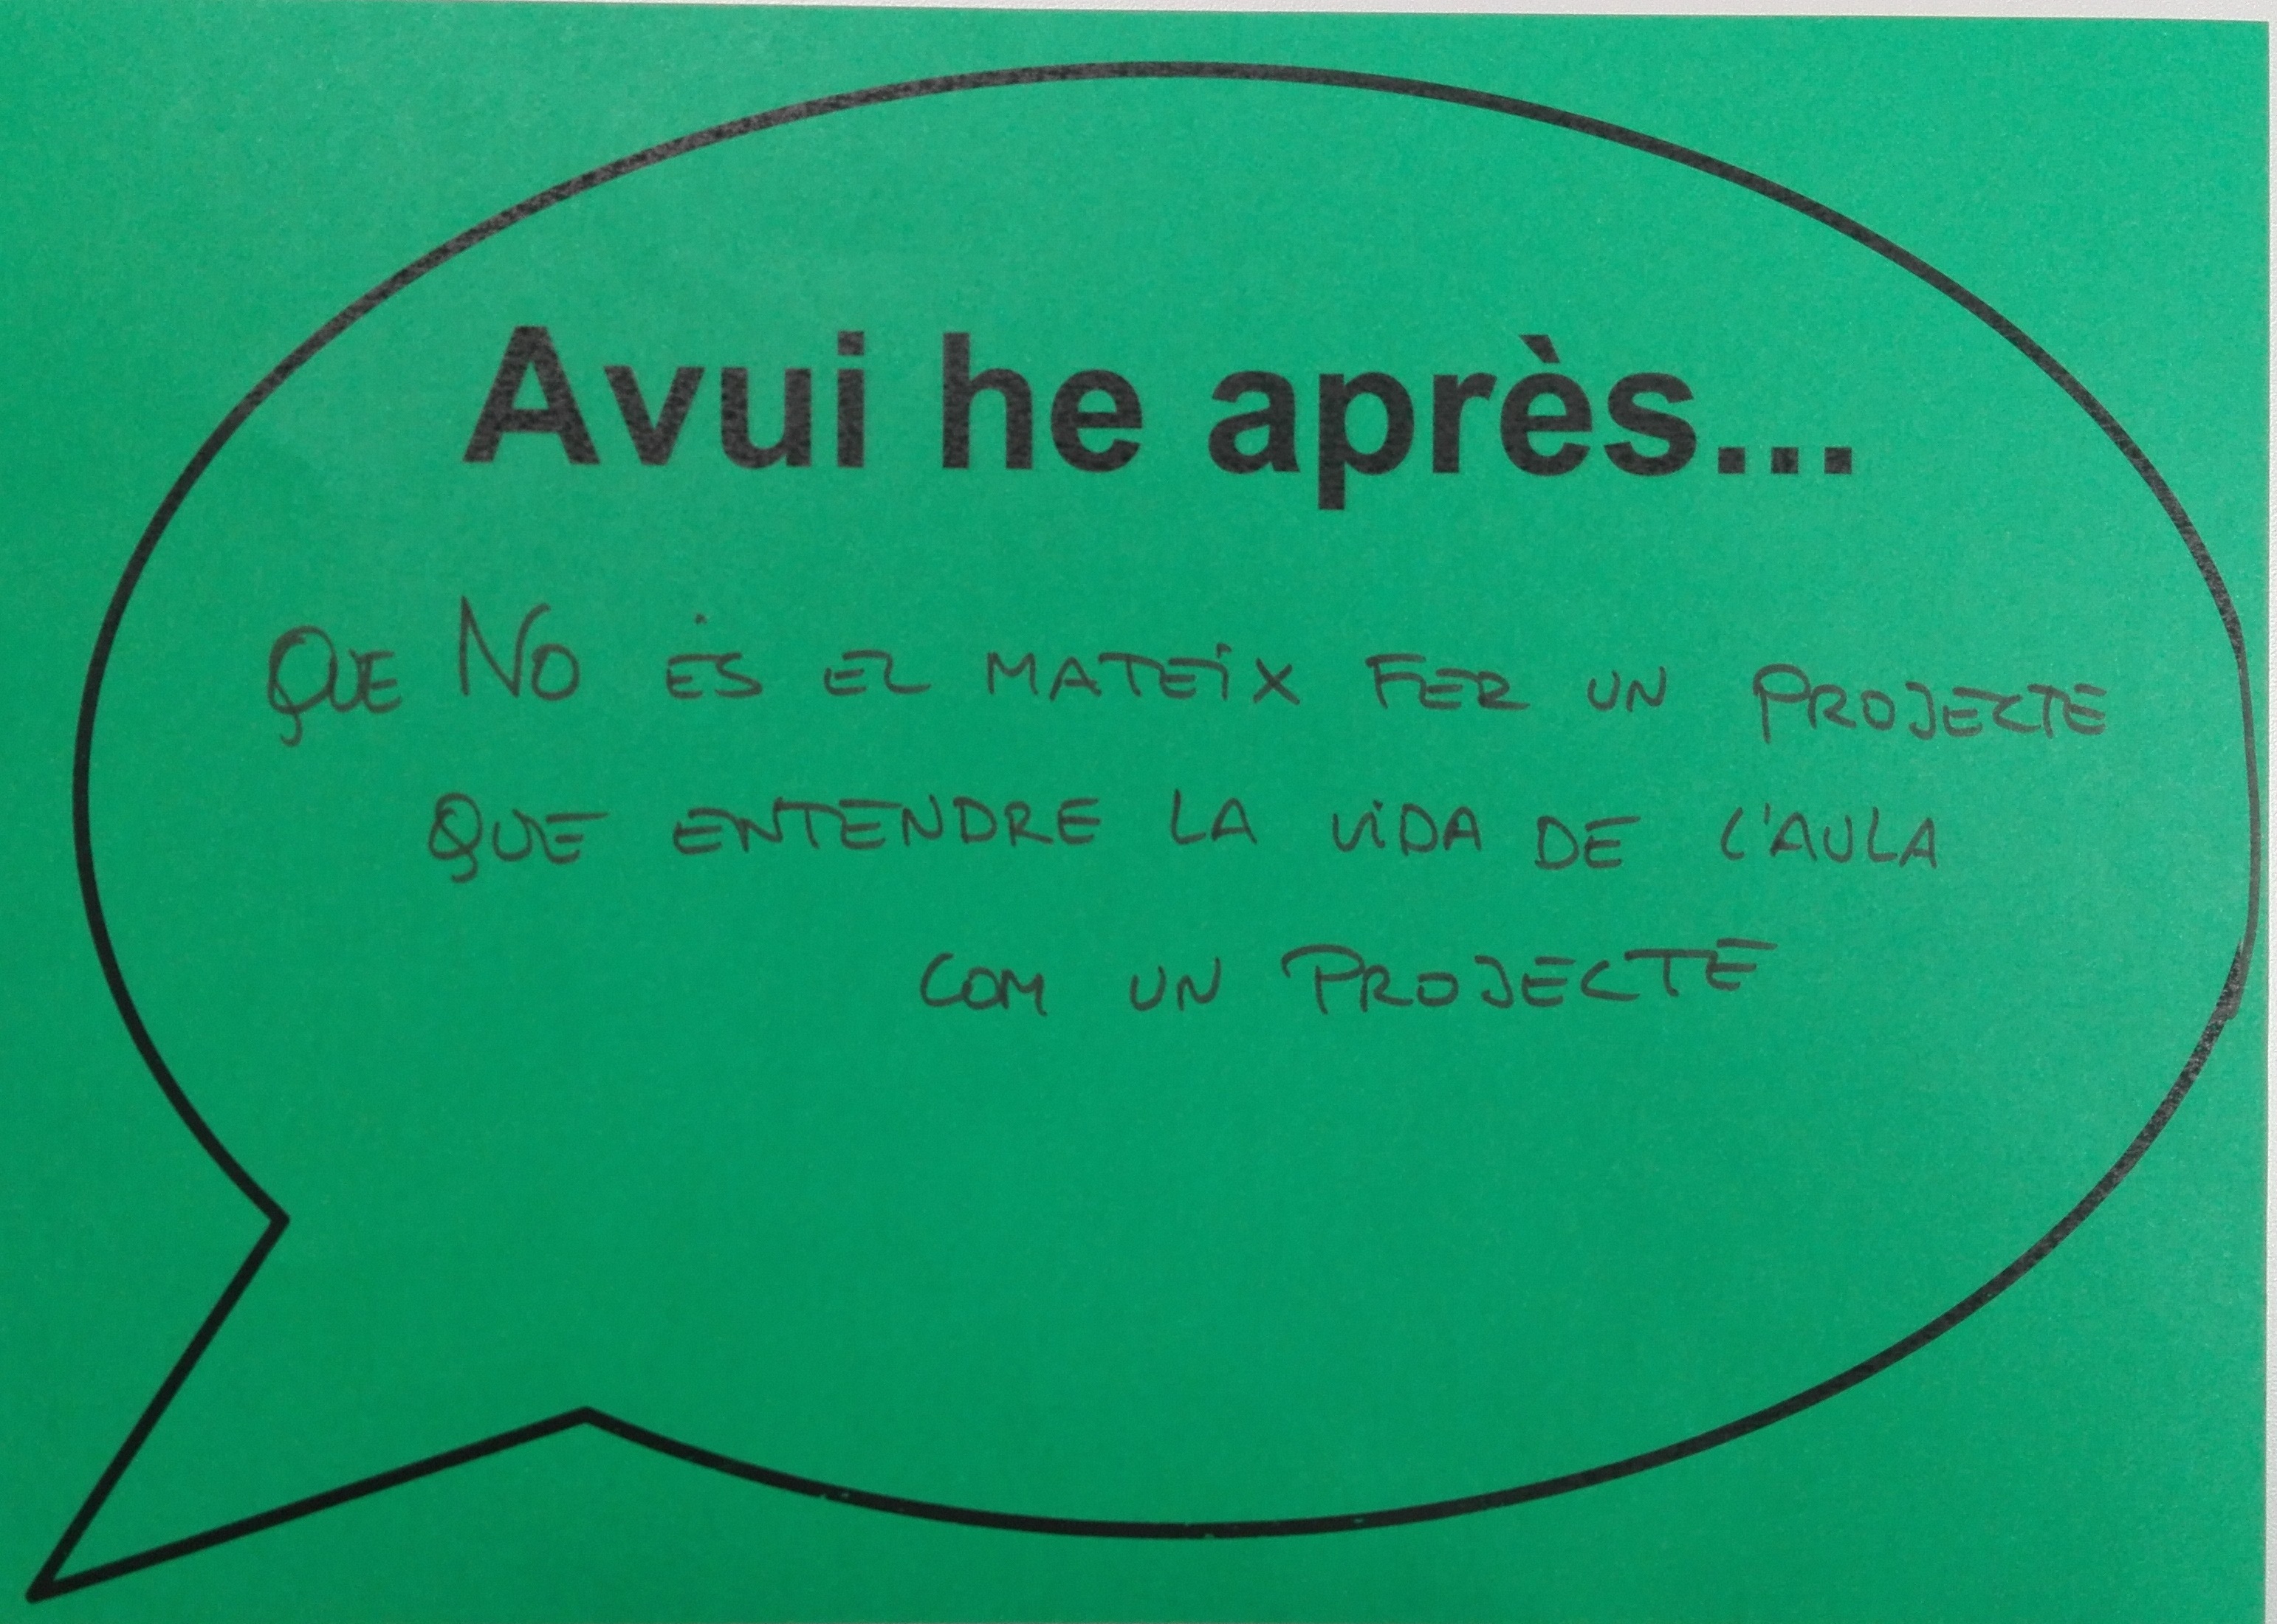 Avui he après...
QUE NO ÉS EL MATEIX FER UN PROJECTE
QUE ENTENDRE LA VIDA DE L'AULA
COM UN PROJECTE